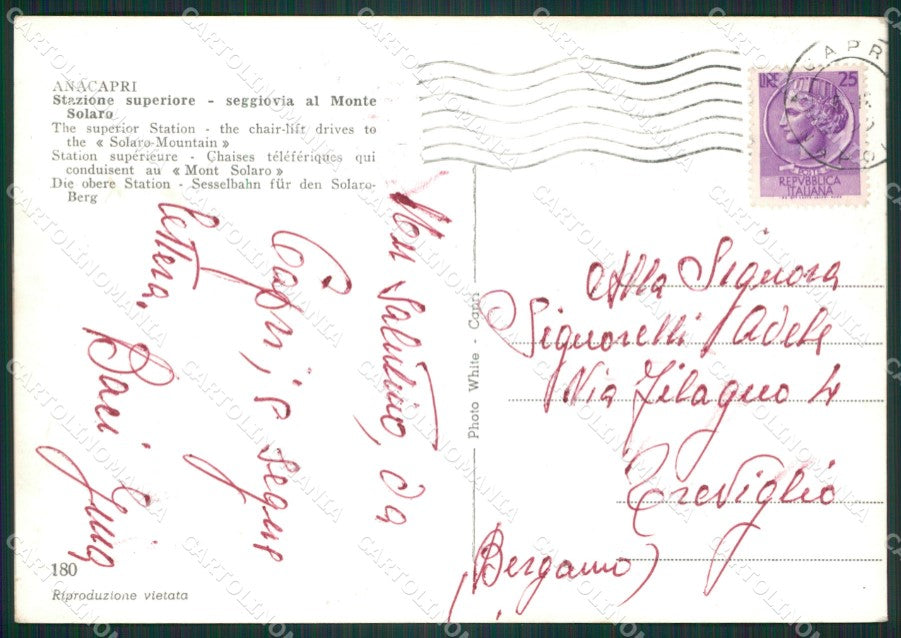 ANACAPRI
Stazione superiore - seggiovia al Monte
Solaro
The superior Station - the chair-lift drives to
the « Solaro-Mountain »
Station supérieure - Chaises téléfériques qui
conduisent au « Mont Solaro »
Die obere Station - Sesselbahn für den Solaro-
Berg
salutino, da
Capri, segue
lettera. Baci
180
Riproduzione vietata
Photo White - Capri
CAPR
LIRE 25
POSTE
REPVBBLICA
ITALIANA
Alla Signora
Signorelli Adele
Via Filagno 4
Treviglio
(Bergamo)
CARTOLINOMANIA